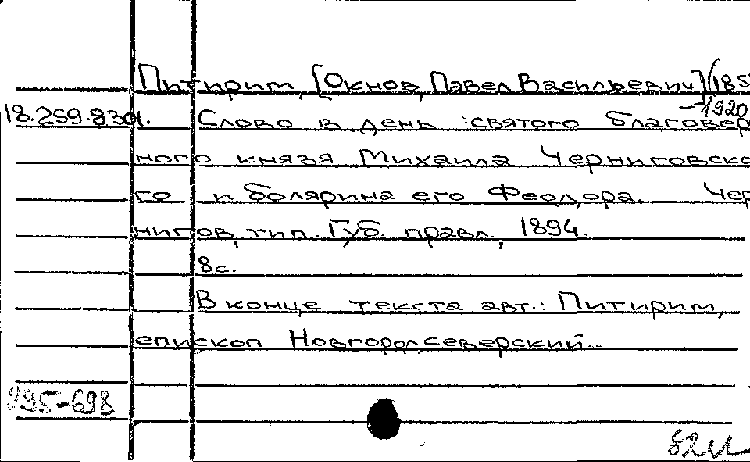 Питирим, [Окнов, Павел Васильевич] (185
-1920
18.259.8.301. Слово в день святого благовер
ного князя Михаила Черниговско
го и болярина его Феодора. Чер
нигов, тип. Губ. правл., 1894.
8с.
В конце текста авт.: Питирим,
епископ Новгородсеверский.
995-698